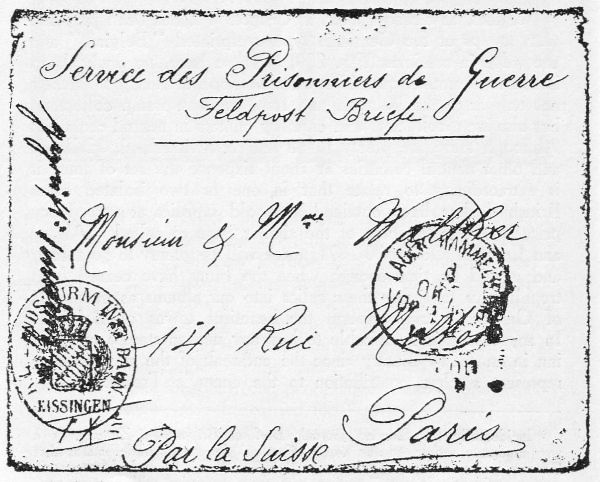 Service des Prisonniers de Guerre
Feldpost Briefe
Monsieur & Mme Walther
14 Rue
Paris
Par la Suisse
LAGER HAMMELBURG
KISSINGEN